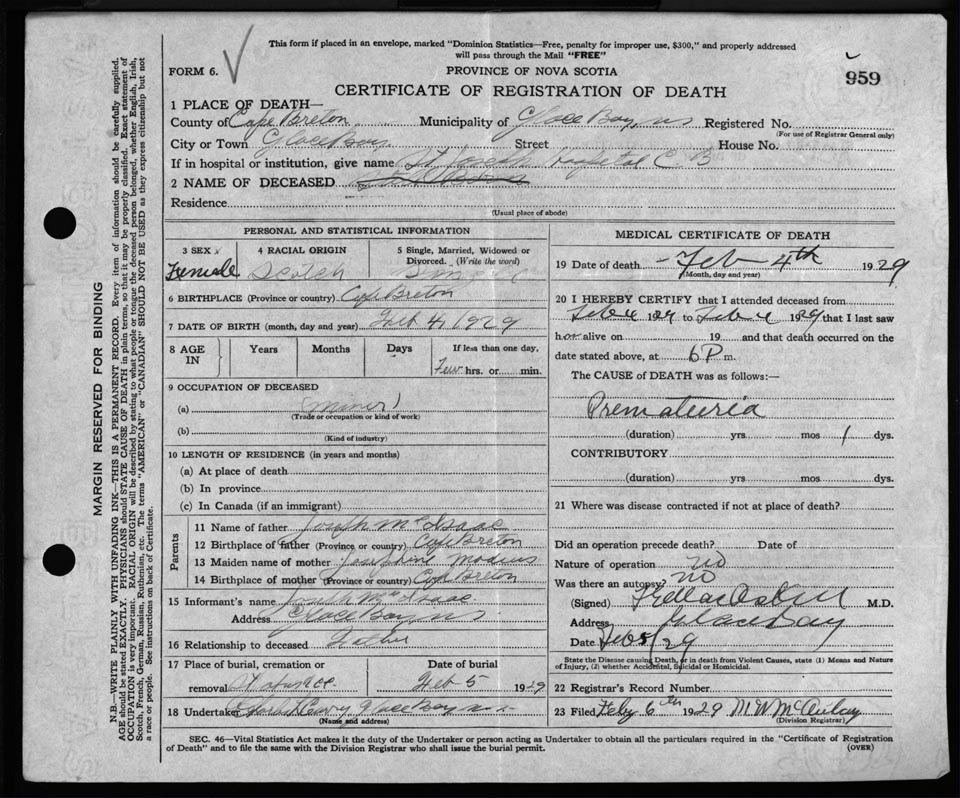 This form if placed in an envelope, marked "Dominion Statistics—Free, penalty for improper use, $300," and properly addressed
will pass through the Mail "FREE"
FORM 6.
PROVINCE OF NOVA SCOTIA
959
CERTIFICATE OF REGISTRATION OF DEATH
1 PLACE OF DEATH—
County of Cape Breton Municipality of Glace Bay, ns Registered No.
(For use of Registrar General only)
City or Town Glace Bay Street House No.
If in hospital or institution, give name St Joseph Hospital C. B
2 NAME OF DECEASED
Residence
(Usual place of abode)
PERSONAL AND STATISTICAL INFORMATION
3 SEX 4 RACIAL ORIGIN 5 Single, Married, Widowed or
Divorced. (Write the word)
Female Scotch Single
6 BIRTHPLACE (Province or country) Cape Breton
7 DATE OF BIRTH (month, day and year) Feb 4, 1929
8 AGE IN Years Months Days If less than one day,
Few hrs. or min.
9 OCCUPATION OF DECEASED
(a) (Miner)
(Trade or occupation or kind of work)
(b)
(Kind of industry)
10 LENGTH OF RESIDENCE (in years and months)
(a) At place of death
(b) In province
(c) In Canada (if an immigrant)
Parents
11 Name of father Joseph McIsaac
12 Birthplace of father (Province or country) Cape Breton
13 Maiden name of mother Josephine
14 Birthplace of mother (Province or country) Cape Breton
15 Informant's name Joseph McIsaac
Address Glace Bay, ns
16 Relationship to deceased Father
17 Place of burial, cremation or Date of burial
removal Feb 5 1929
18 Undertaker Glace Bay n.s.
(Name and address)
MEDICAL CERTIFICATE OF DEATH
19 Date of death Feb 4th 1929
(Month, day and year)
20 I HEREBY CERTIFY that I attended deceased from
Feb 4 1929 to Feb 4 1929 that I last saw
h alive on 19 and that death occurred on the
date stated above, at 6 P m.
The CAUSE of DEATH was as follows:—
Prematuria
(duration) yrs mos 1 dys.
CONTRIBUTORY
(duration) yrs mos dys.
21 Where was disease contracted if not at place of death?
Did an operation precede death? Date of
Nature of operation no
Was there an autopsy? no
(Signed) M.D.
Address Glace Bay
Date Feb 5/29
State the Disease causing Death, or in death from Violent Causes, state (1) Means and Nature
of Injury, (2) whether Accidental, Suicidal or Homicidal.
22 Registrar's Record Number
23 Filed Feby 6th 1929 M W McAulay
(Division Registrar)
SEC. 46—Vital Statistics Act makes it the duty of the Undertaker or person acting as Undertaker to obtain all the particulars required in the "Certificate of Registration
of Death" and to file the same with the Division Registrar who shall issue the burial permit.
(OVER)
MARGIN RESERVED FOR BINDING
N.B.—WRITE PLAINLY WITH UNFADING INK—THIS IS A PERMANENT RECORD. Every item of information should be carefully supplied.
AGE should be stated EXACTLY. PHYSICIANS should STATE CAUSE OF DEATH in plain terms, so that it may be properly classified. Exact statement of
OCCUPATION is very important. RACIAL ORIGIN will be described by stating to what people or tongue the deceased person belonged, whether English, Irish,
Scotch, French, German, Russian, Ruthenian, etc. The terms "AMERICAN" or "CANADIAN" SHOULD NOT BE USED as they express citizenship but not
a race or people. See instructions on back of Certificate.